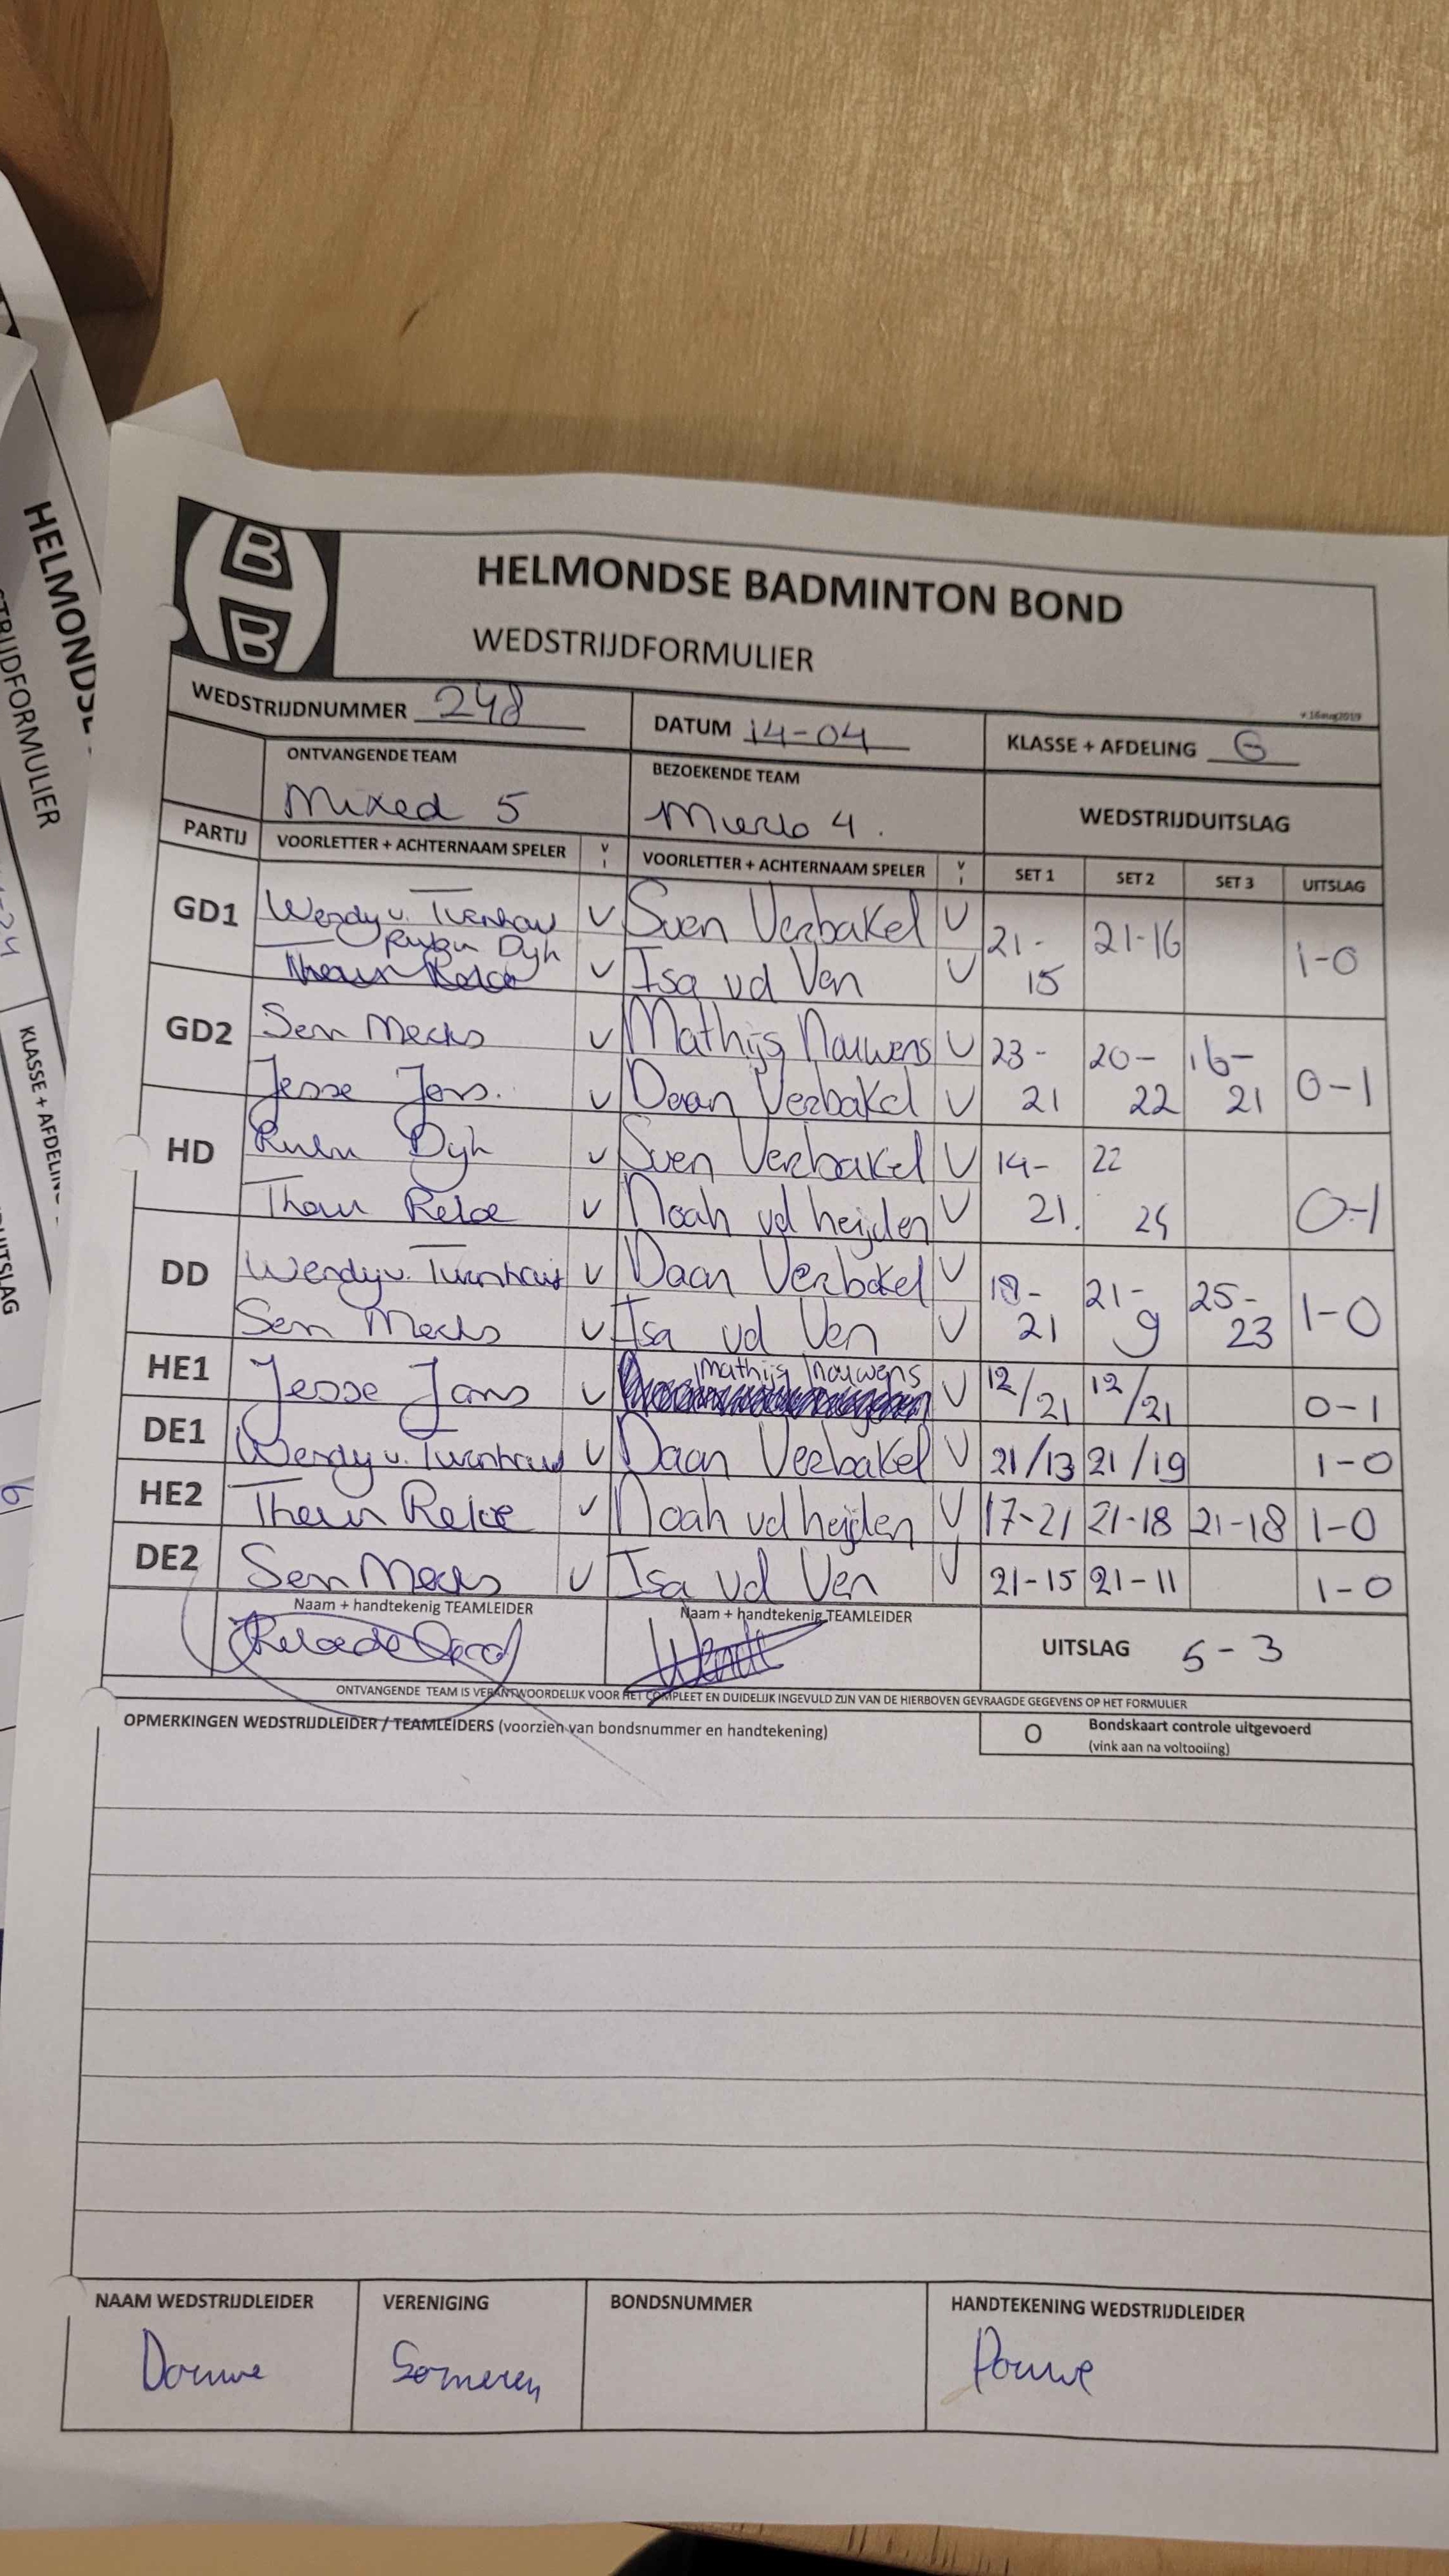 HELMONDSE BADMINTON BOND
WEDSTRIJDFORMULIER
v.16aug2019
WEDSTRIJDNUMMER 248
DATUM 14-04
KLASSE + AFDELING G
ONTVANGENDE TEAM
BEZOEKENDE TEAM
WEDSTRIJDUITSLAG
Mixed 5
Mierlo 4.
PARTIJ VOORLETTER + ACHTERNAAM SPELER V VOORLETTER + ACHTERNAAM SPELER V SET 1 SET 2 SET 3 UITSLAG
GD1 Wendy v. Turnhout V Sven Verbakel V 21-15 21-16 1-0
Dyh V Isa vd Ven V
GD2 Sen V Mathijs Nouwens V 23-21 20-22 16-21 0-1
Jesse Jans. V Daan Verbakel V
HD Dyh V Sven Verbakel V 14-21. 22 25 0-1
V Noah vd heijden V
DD Wendy v. Turnhout V Daan Verbakel V 18-21 21-9 25-23 1-0
Sen V Isa vd Ven V
HE1 Jesse Jans V Mathijs Nouwens V 12/21 12/21 0-1
DE1 Wendy v. Turnhout V Daan Verbakel V 21/13 21/19 1-0
HE2 V Noah vd heijden V 17-21 21-18 21-18 1-0
DE2 Sen V Isa vd Ven V 21-15 21-11 1-0
Naam + handtekenig TEAMLEIDER
Naam + handtekenig TEAMLEIDER
UITSLAG 5-3
ONTVANGENDE TEAM IS VERANTWOORDELIJK VOOR HET COMPLEET EN DUIDELIJK INGEVULD ZIJN VAN DE HIERBOVEN GEVRAAGDE GEGEVENS OP HET FORMULIER
OPMERKINGEN WEDSTRIJDLEIDER / TEAMLEIDERS (voorzien van bondsnummer en handtekening)
O Bondskaart controle uitgevoerd
(vink aan na voltooiing)
NAAM WEDSTRIJDLEIDER VERENIGING BONDSNUMMER HANDTEKENING WEDSTRIJDLEIDER
Douwe Someren Douwe